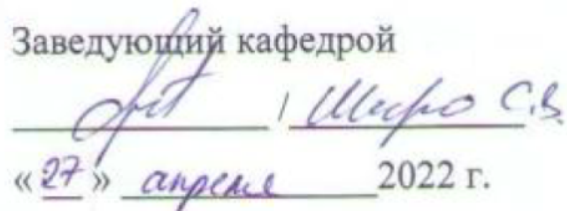 Заведующий кафедрой
/ Широ С.В.
«27» апреля 2022 г.